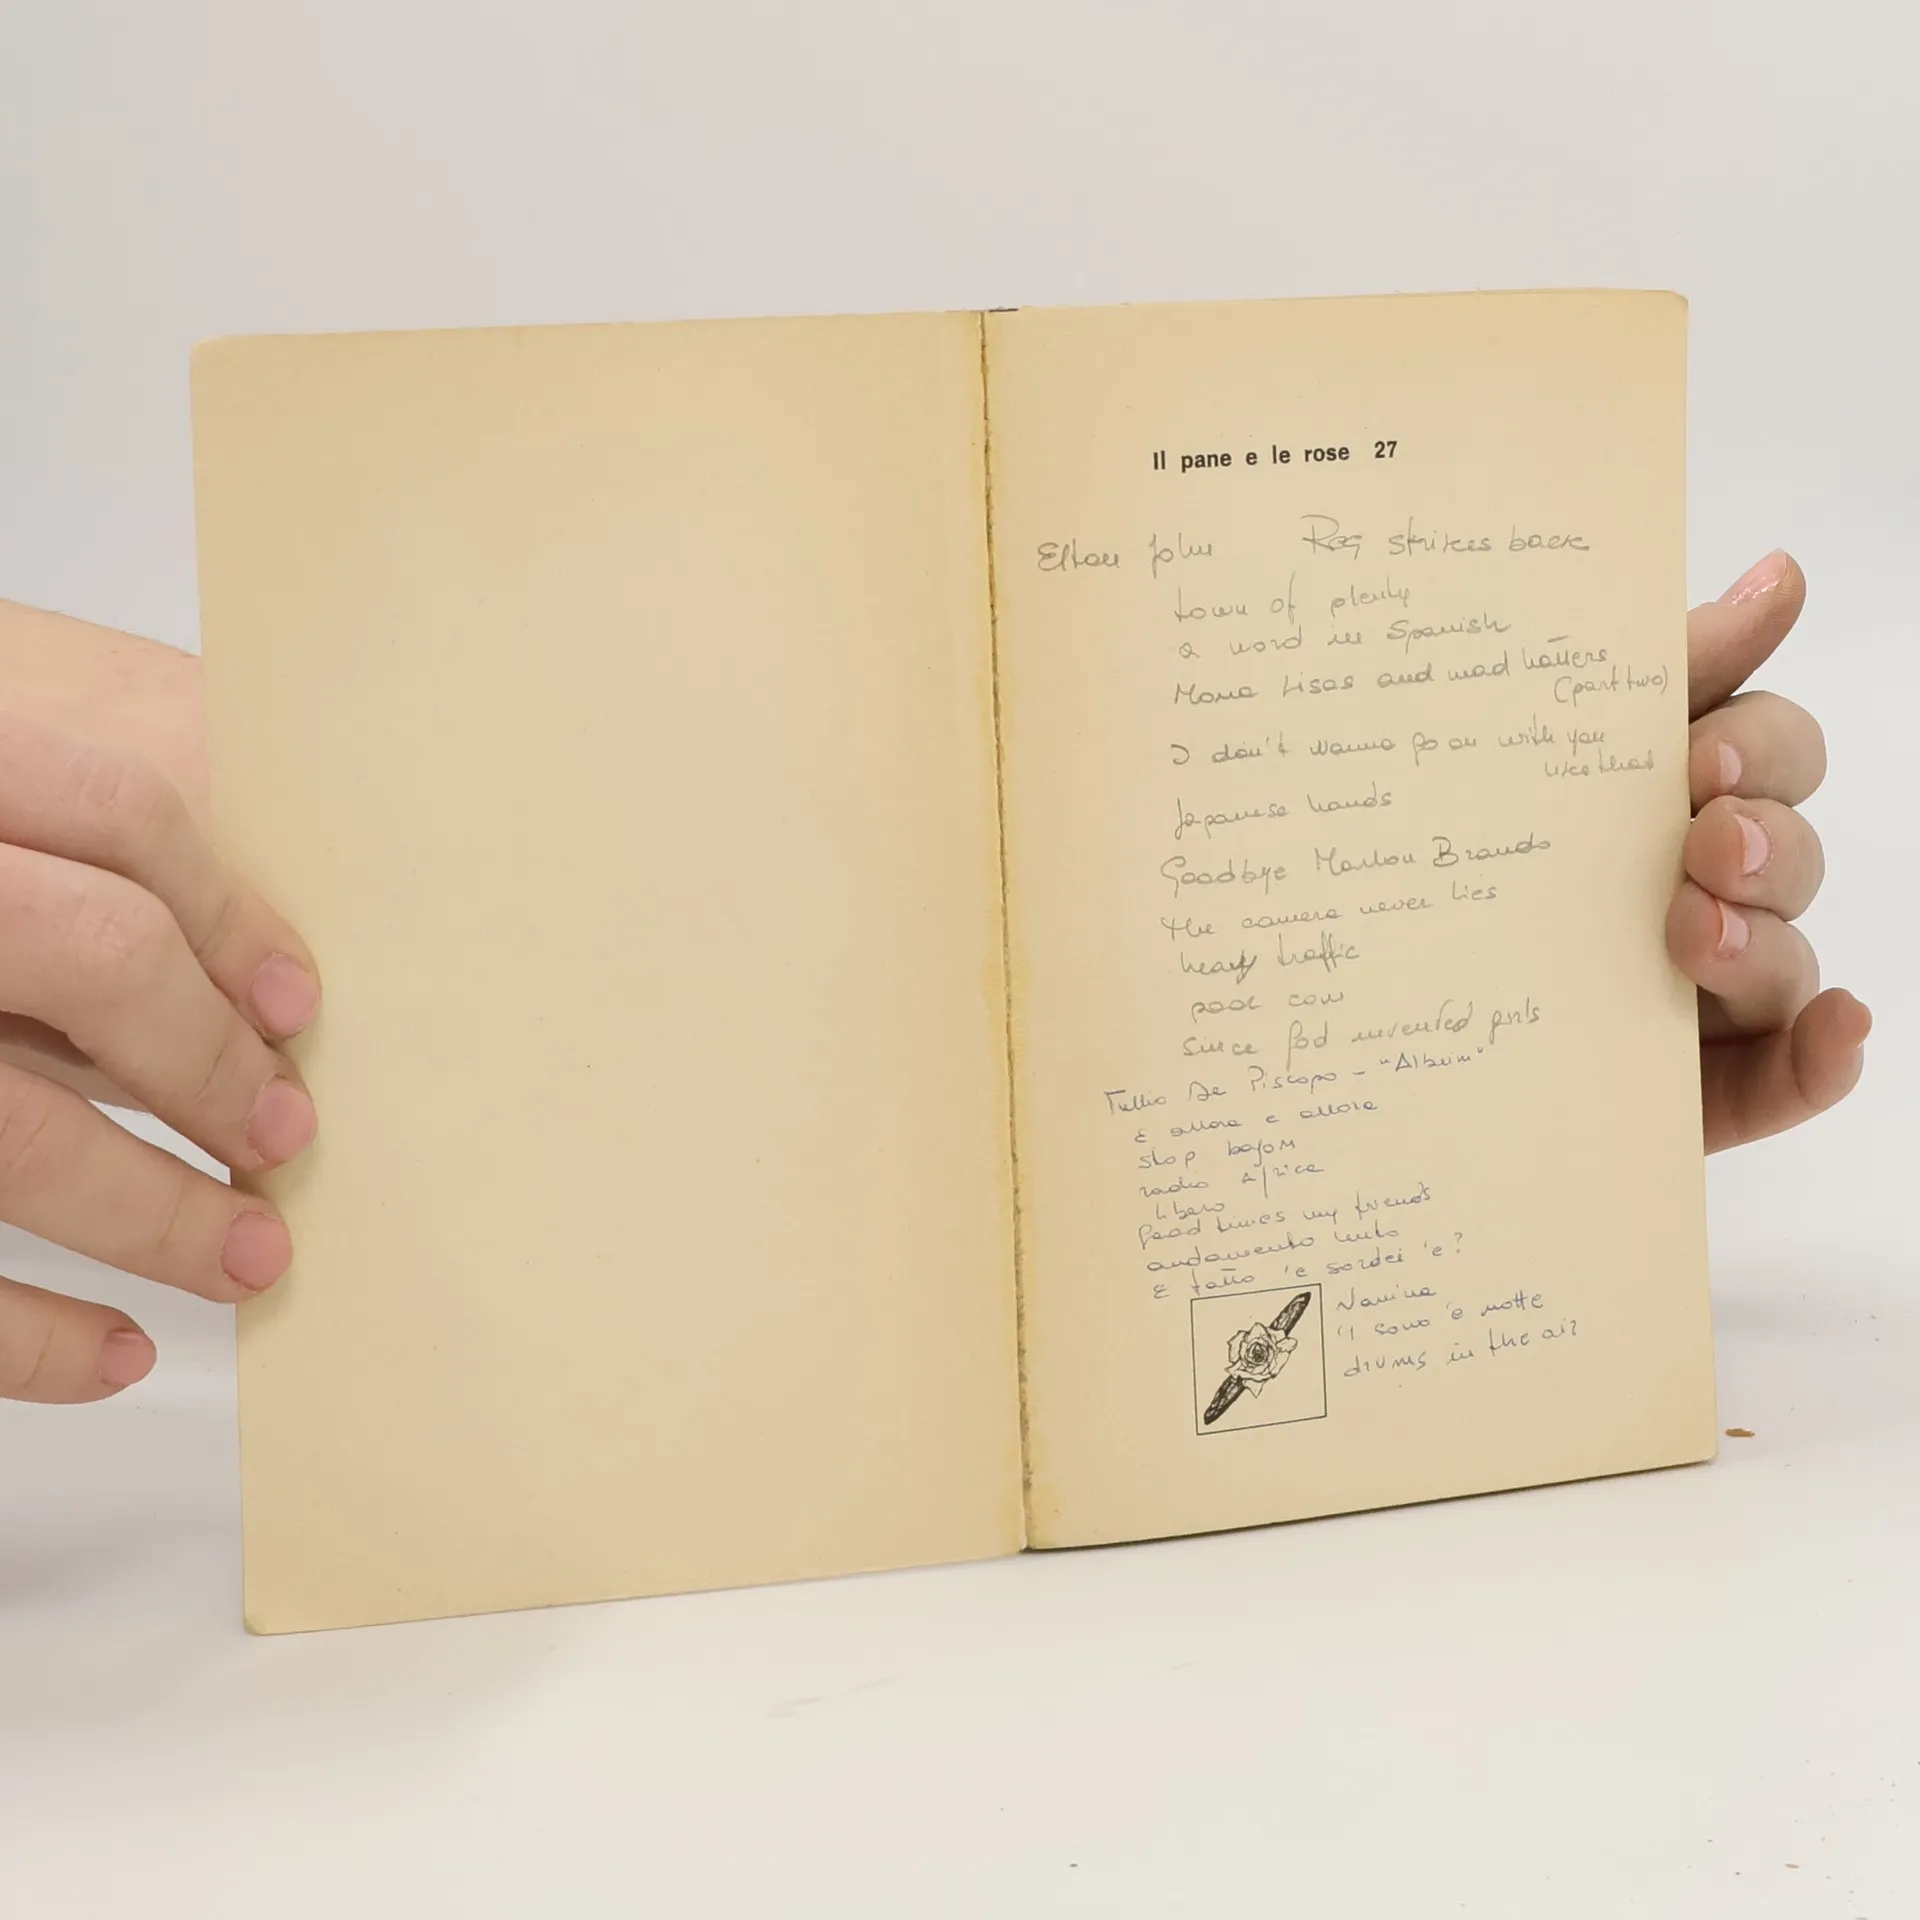 Il pane e le rose 27
Elton John Reg strikes back
town of plenty
a word in Spanish
Mona Lisas and mad hatters
(part two)
I don't wanna go on with you
like that
Japanese hands
Goodbye Marlon Brando
the camera never lies
heavy traffic
poor cow
since god invented girls
Tullio De Piscopo - "Album"
E allora e allora
stop bajon
radio Africa
libero
good times my friends
andamento lento
E fatto 'e sordei 'e?
Namina
'I sono 'e notte
drums in the air